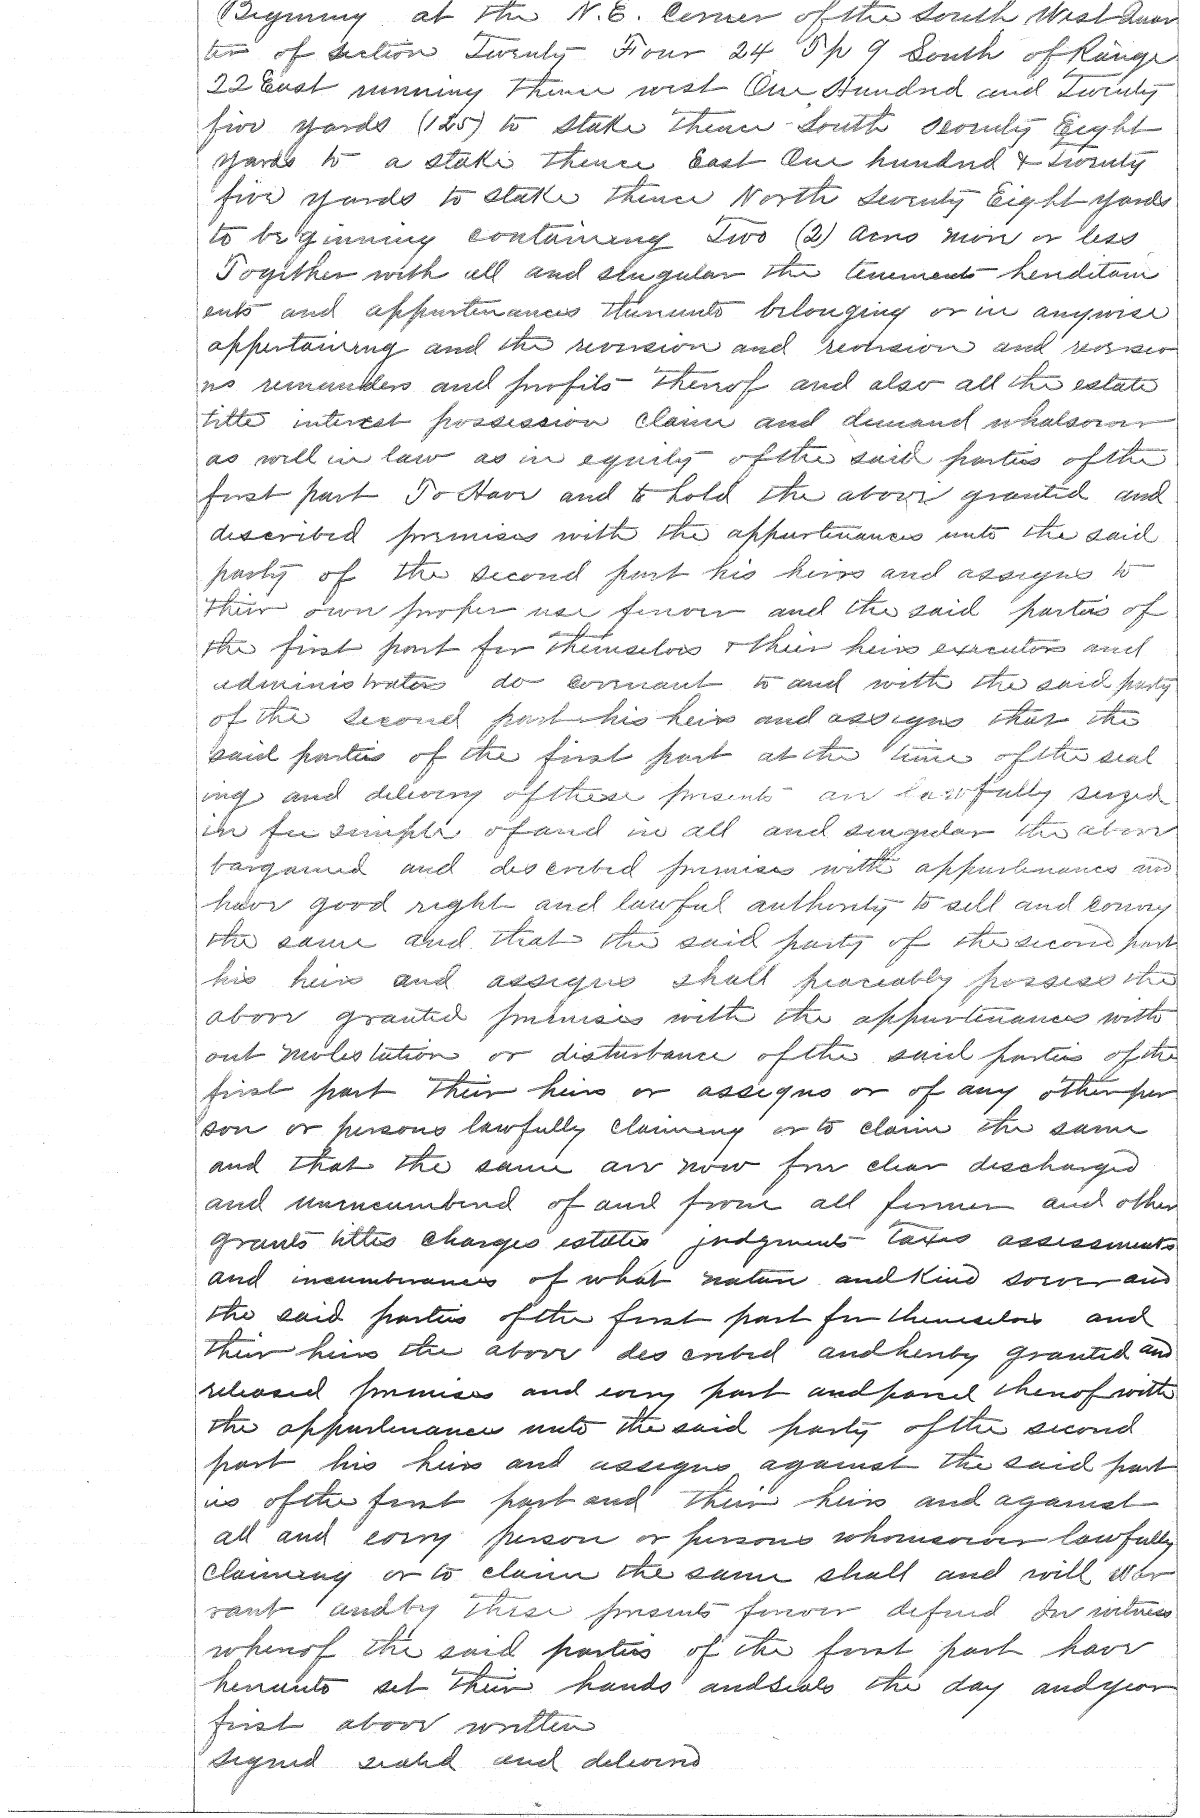 Beginning at the N.E. Corner of the South West Quar
ter of section Twenty Four 24 Tp 9 South of Range
22 East running thence west One Hundred and Twenty
five yards (125) to stake thence South seventy Eight
yards to a stake thence East One hundred & Twenty
five yards to stake thence North seventy Eight yards
to beginning containing Two (2) acres more or less
Together with all and singular the tenements hereditam
ents and appurtenances thereunto belonging or in anywise
appertaining and the reversion and reversion and reversio
ns remainders and profits thereof and also all the estate
title interest possession claim and demand whatsoever
as well in law as in equity of the said parties of the
first part To Have and to hold the above granted and
described premises with the appurtenances unto the said
party of the second part his heirs and assigns to
their own proper use forever and the said parties of
the first part for themselves & their heirs executors and
administrators do covenant to and with the said party
of the second part his heirs and assigns that the
said parties of the first part at the time of the seal
ing and delivery of these presents are lawfully seized
in fee simple of and in all and singular the above
bargained and described premises with appurtenances and
have good right and lawful authority to sell and convey
the same and that the said party of the second part
his heirs and assigns shall peaceably possess the
above granted premises with the appurtenances with
out molestation or disturbance of the said parties of the
first part their heirs or assigns or of any other per
son or persons lawfully claiming or to claim the same
and that the same are now free clear discharged
and unencumbered of and from all former and other
grants titles charges estates judgments taxes assessments
and incumbrances of what nature and kind soever and
the said parties of the first part for themselves and
their heirs the above described and hereby granted and
released premises and every part and parcel thereof with
the appurtenances unto the said party of the second
part his heirs and assigns against the said part
ies of the first part and their heirs and against
all and every person or persons whomsoever lawfully
claiming or to claim the same shall and will War
rant and by these presents forever defend In witness
whereof the said parties of the first part have
hereunto set their hands and seals the day and year
first above written
signed sealed and delivered